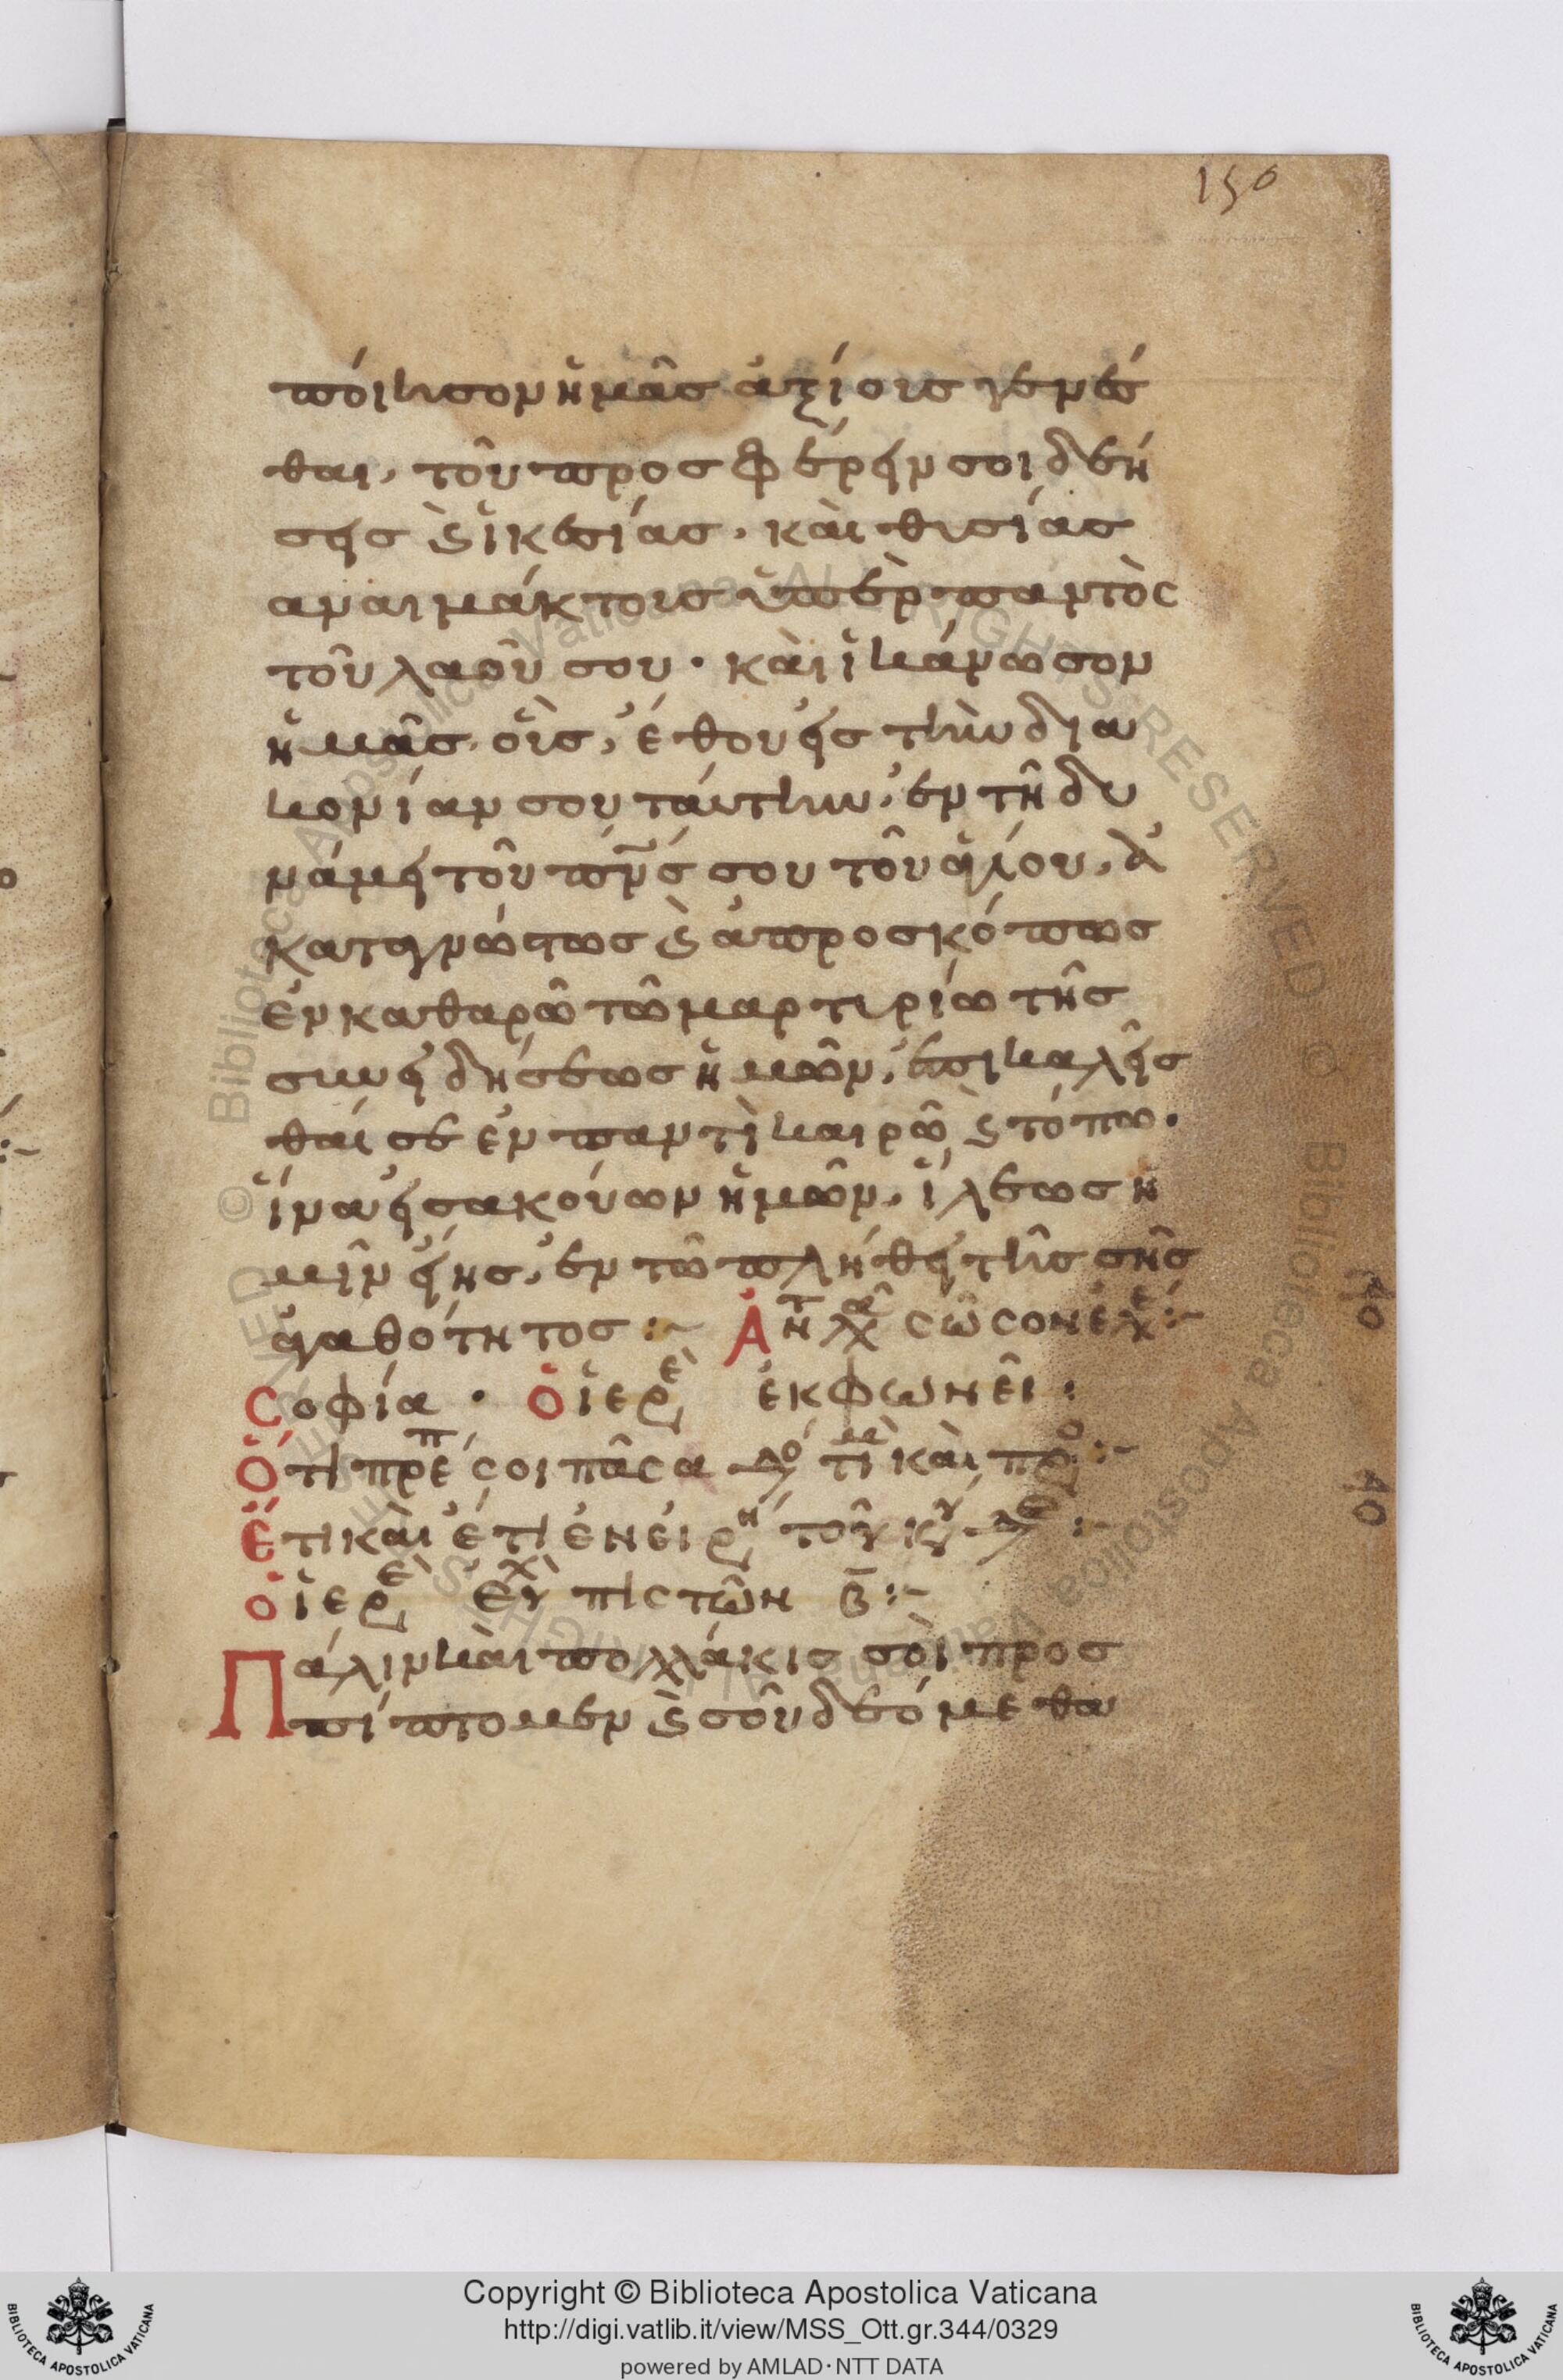 150
ποίησον ἡμᾶς ἀξίοις γενέσ
θαι, τοῦ προσφέρειν σοι δεή
σεις ϗ̀ ἱκεσίας · καὶ θυσίας
αναιμάκτοις ὑπὲρ παντὸς
τοῦ λαοῦ σου · καὶ ἱκάνωσον
ἡμᾶς οἷς, ἔθου εἰς τὴν δια
κονίαν σου ταύτην, ἐν τῆ δυ
νάμει τοῦ πν̅ς σου τοῦ ἁγίου, ἀ
καταγνώστως ϗ̀ ἀπροσκόπτως
ἐν καθαρῶ τῶ μαρτυρίω τῆς
συνειδήσεως ἡμῶν, ἐπικαλεῖσ
θαί σε ἐν παντὶ καιρῶ ϗ̀ τόπω ·
ἵνα εἰσακούων ἡμῶν, ἵλεως ἡ
μῖν εἴης, ἐν τῶ πλήθει τῆς σῆς
ἀγαθότητος :~ Ἀντ λα σῶσον ἐλέ :~
Σοφία · ὁ ἱερε ἐκφωνεῖ :
Ὅτι πρέπ σοι πᾶσα δο τιμ καὶ προ :~
Ἔτι καὶ ἔτι ἐν εἰρη τοῦ κυ δε :~
ὁ ἱερε εὐχ πιστῶν β̅ :~
Πάλιν καὶ πολλάκις σοὶ προσ
πίπτομεν ϗ̀ σοῦ δεόμεθα
Copyright © Biblioteca Apostolica Vaticana
http://digi.vatlib.it/view/MSS_Ott.gr.344/0329
powered by AMLAD·NTT DATA
BIBLIOTECA APOSTOLICA VATICANA
BIBLIOTECA APOSTOLICA VATICANA